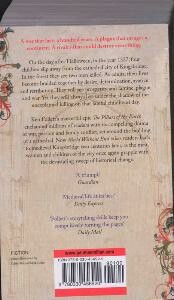 A war that lasts a hundred years. A plague that ravages a
continent. A rivalry that could destroy everything.
On the day after Halloween, in the year 1327, four
children slip away from the cathedral city of Kingsbridge.
In the forest they see two men killed. As adults, their lives
become braided together by desire, determination, avarice
and retribution. They will see prosperity and famine, plague
and war. Yet they will always live under the shadow of the
unexplained killings on that fateful childhood day.
Ken Follett's masterful epic The Pillars of the Earth
enchanted millions of readers with its compelling drama
of war, passion and family conflict, set around the building
of a cathedral. Now World Without End takes readers back
to medieval Kingsbridge two centuries later, as the men,
women and children of the city once again grapple with
the devastating sweep of historical change.
'A triumph'
Guardian
Medieval life at its best
Daily Express
'Follett's storytelling skills keep you
compulsively turning the pages'
Daily Mail
FICTION